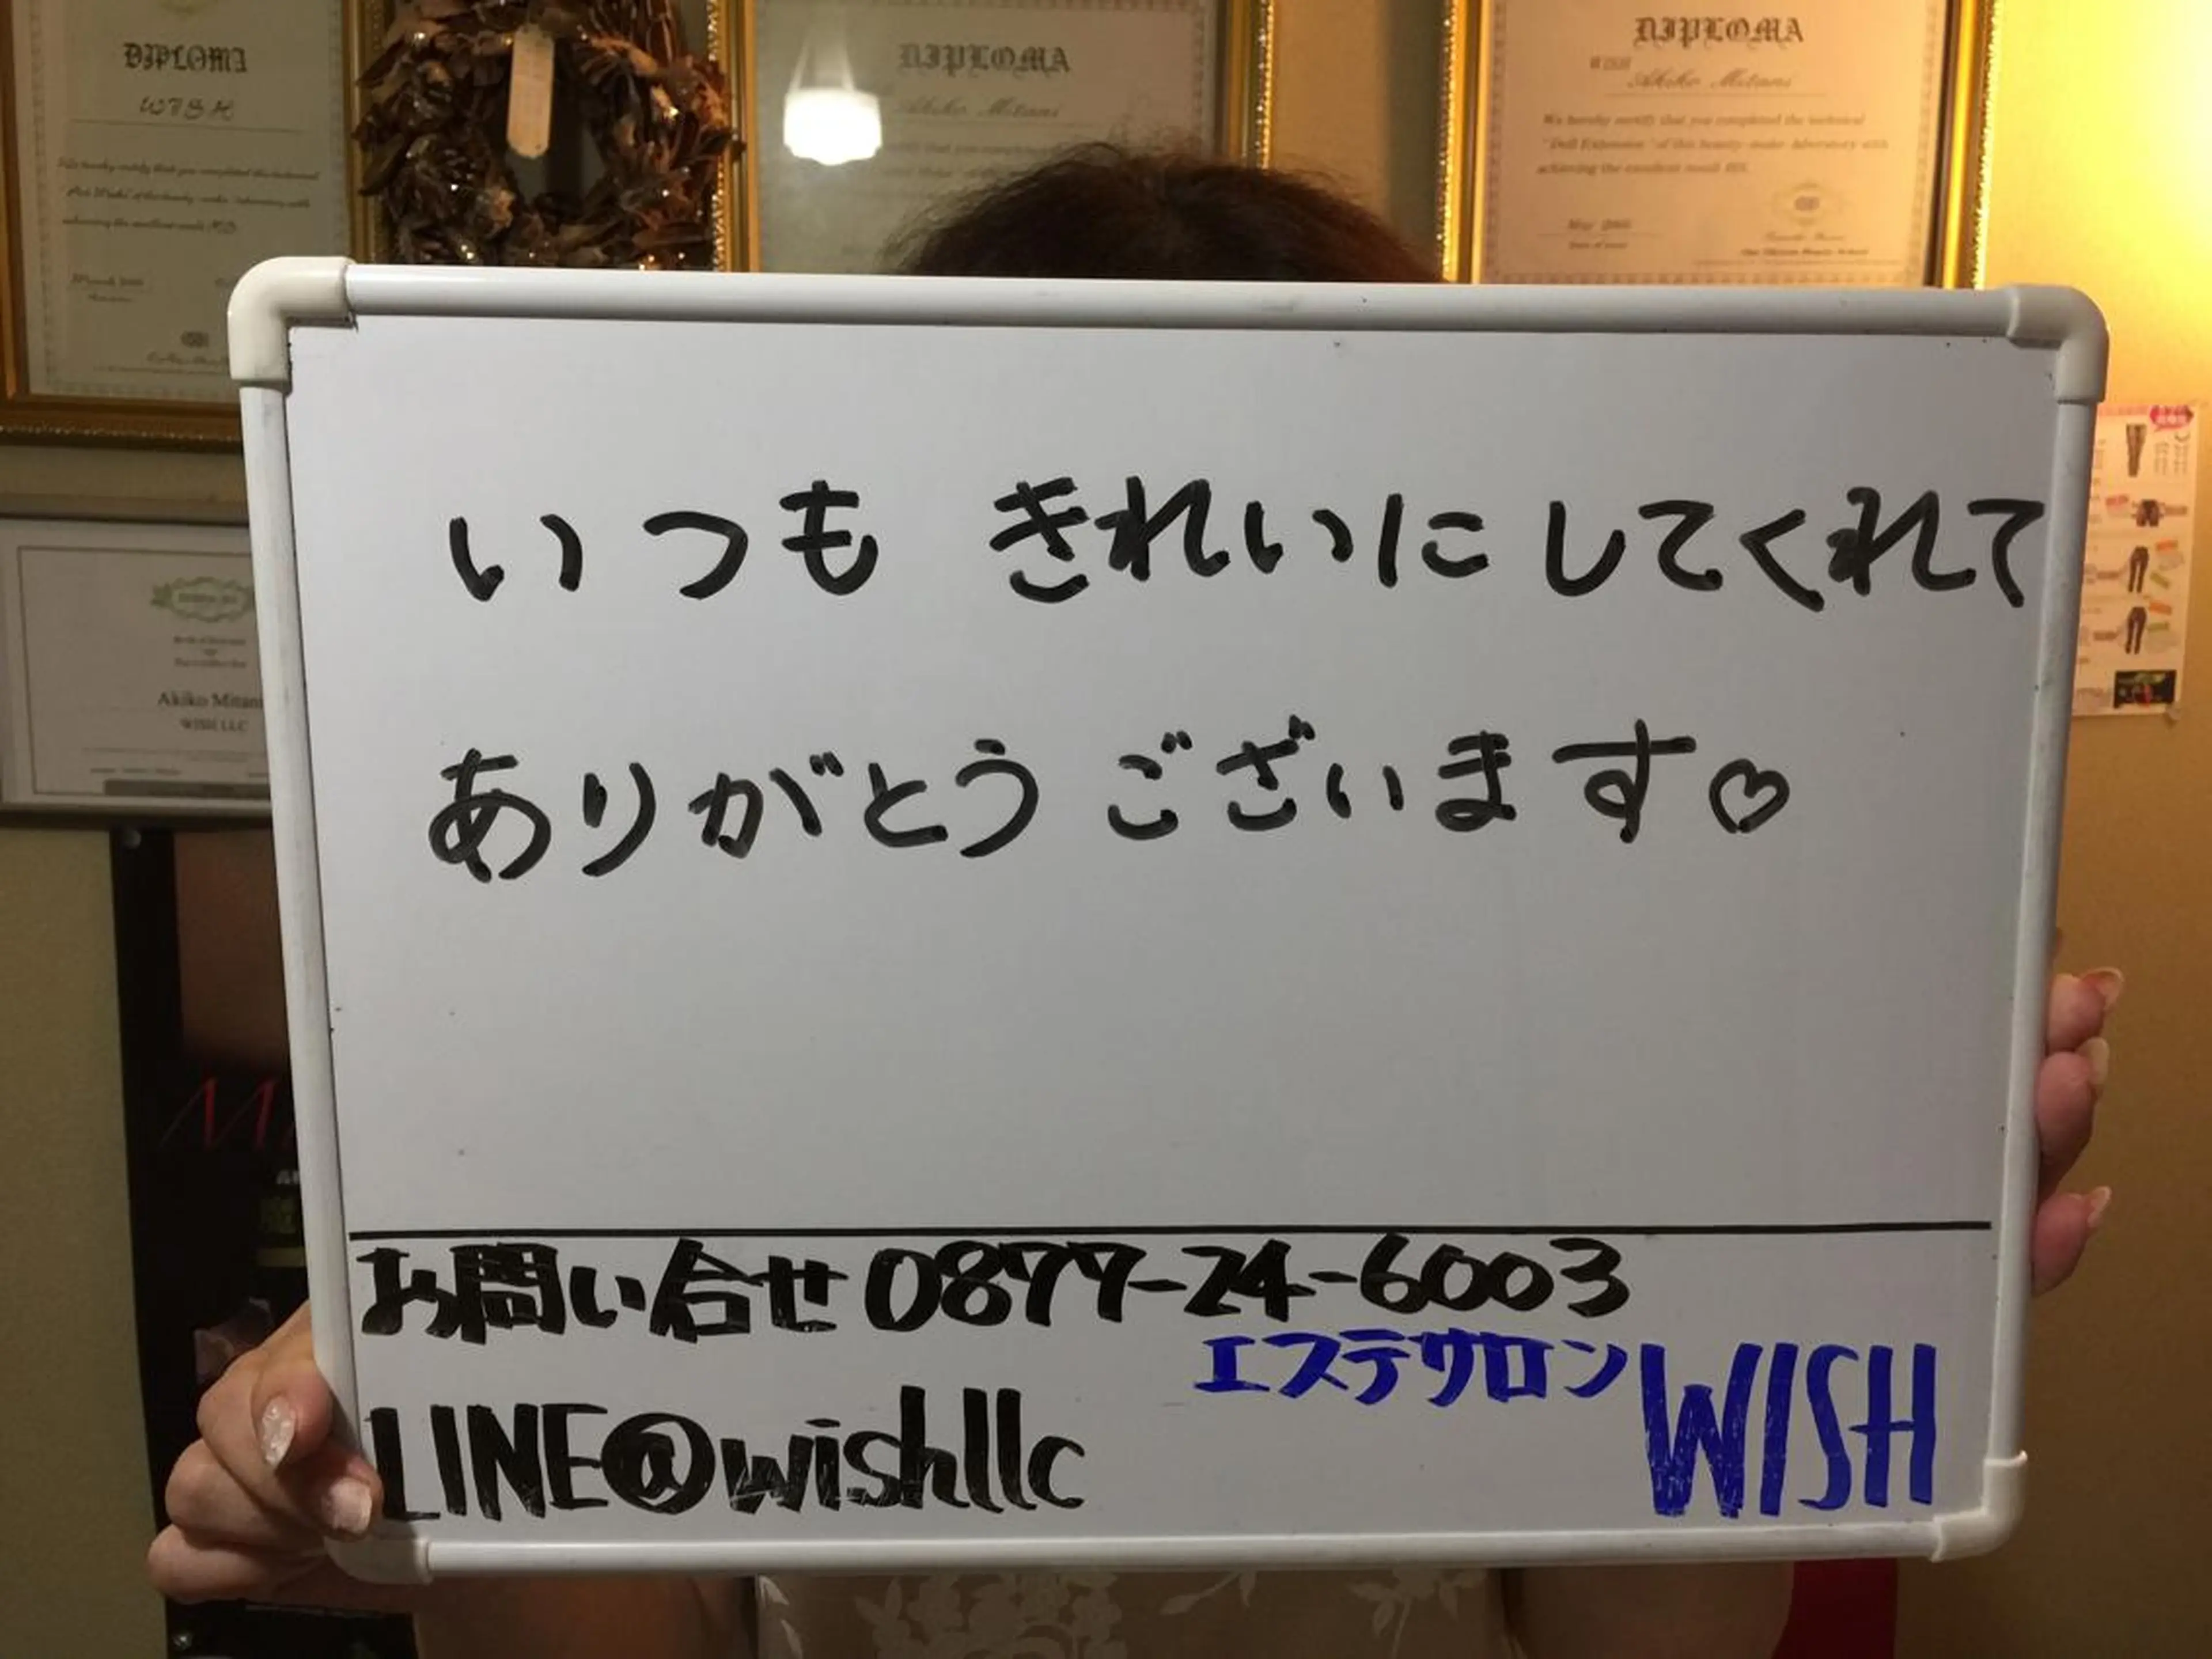 DIPLOMA
WISH
DIPLOMA
Akiko Mitani
DIPLOMA
WISH
Akiko Mitani
We hereby certify that you completed the technical
"Doll Extension" of this beauty make laboratory with
achieving the excellent result
Akiko Mitani
WISH LLC
いつも きれいにしてくれて
ありがとうございます♡
お問い合せ0877-24-6003
エステサロンWISH
LINE@wishllc